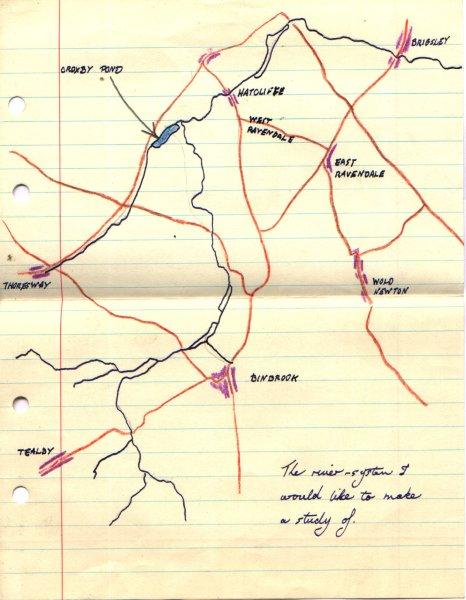 BRIGSLEY
CROXBY POND
HATCLIFFE
WEST
RAVENDALE
EAST
RAVENDALE
THORESWEY
WOLD
NEWTON
BINBROOK
TEALBY
The river-system I
would like to make
a study of.